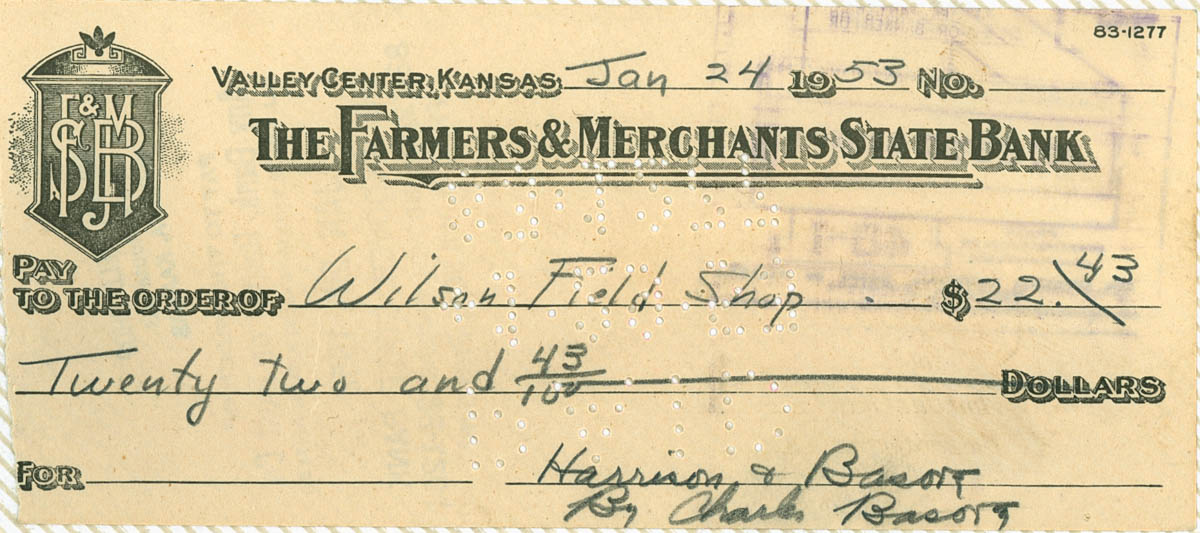 83-1277
VALLEY CENTER, KANSAS, Jan 24 1953 NO.
F&M SB
THE FARMERS & MERCHANTS STATE BANK
PAY
TO THE ORDER OF Wilson Field Shop $22.43
Twenty two and 43/100 DOLLARS
FOR
Harrison & Basore
By Charles Basore